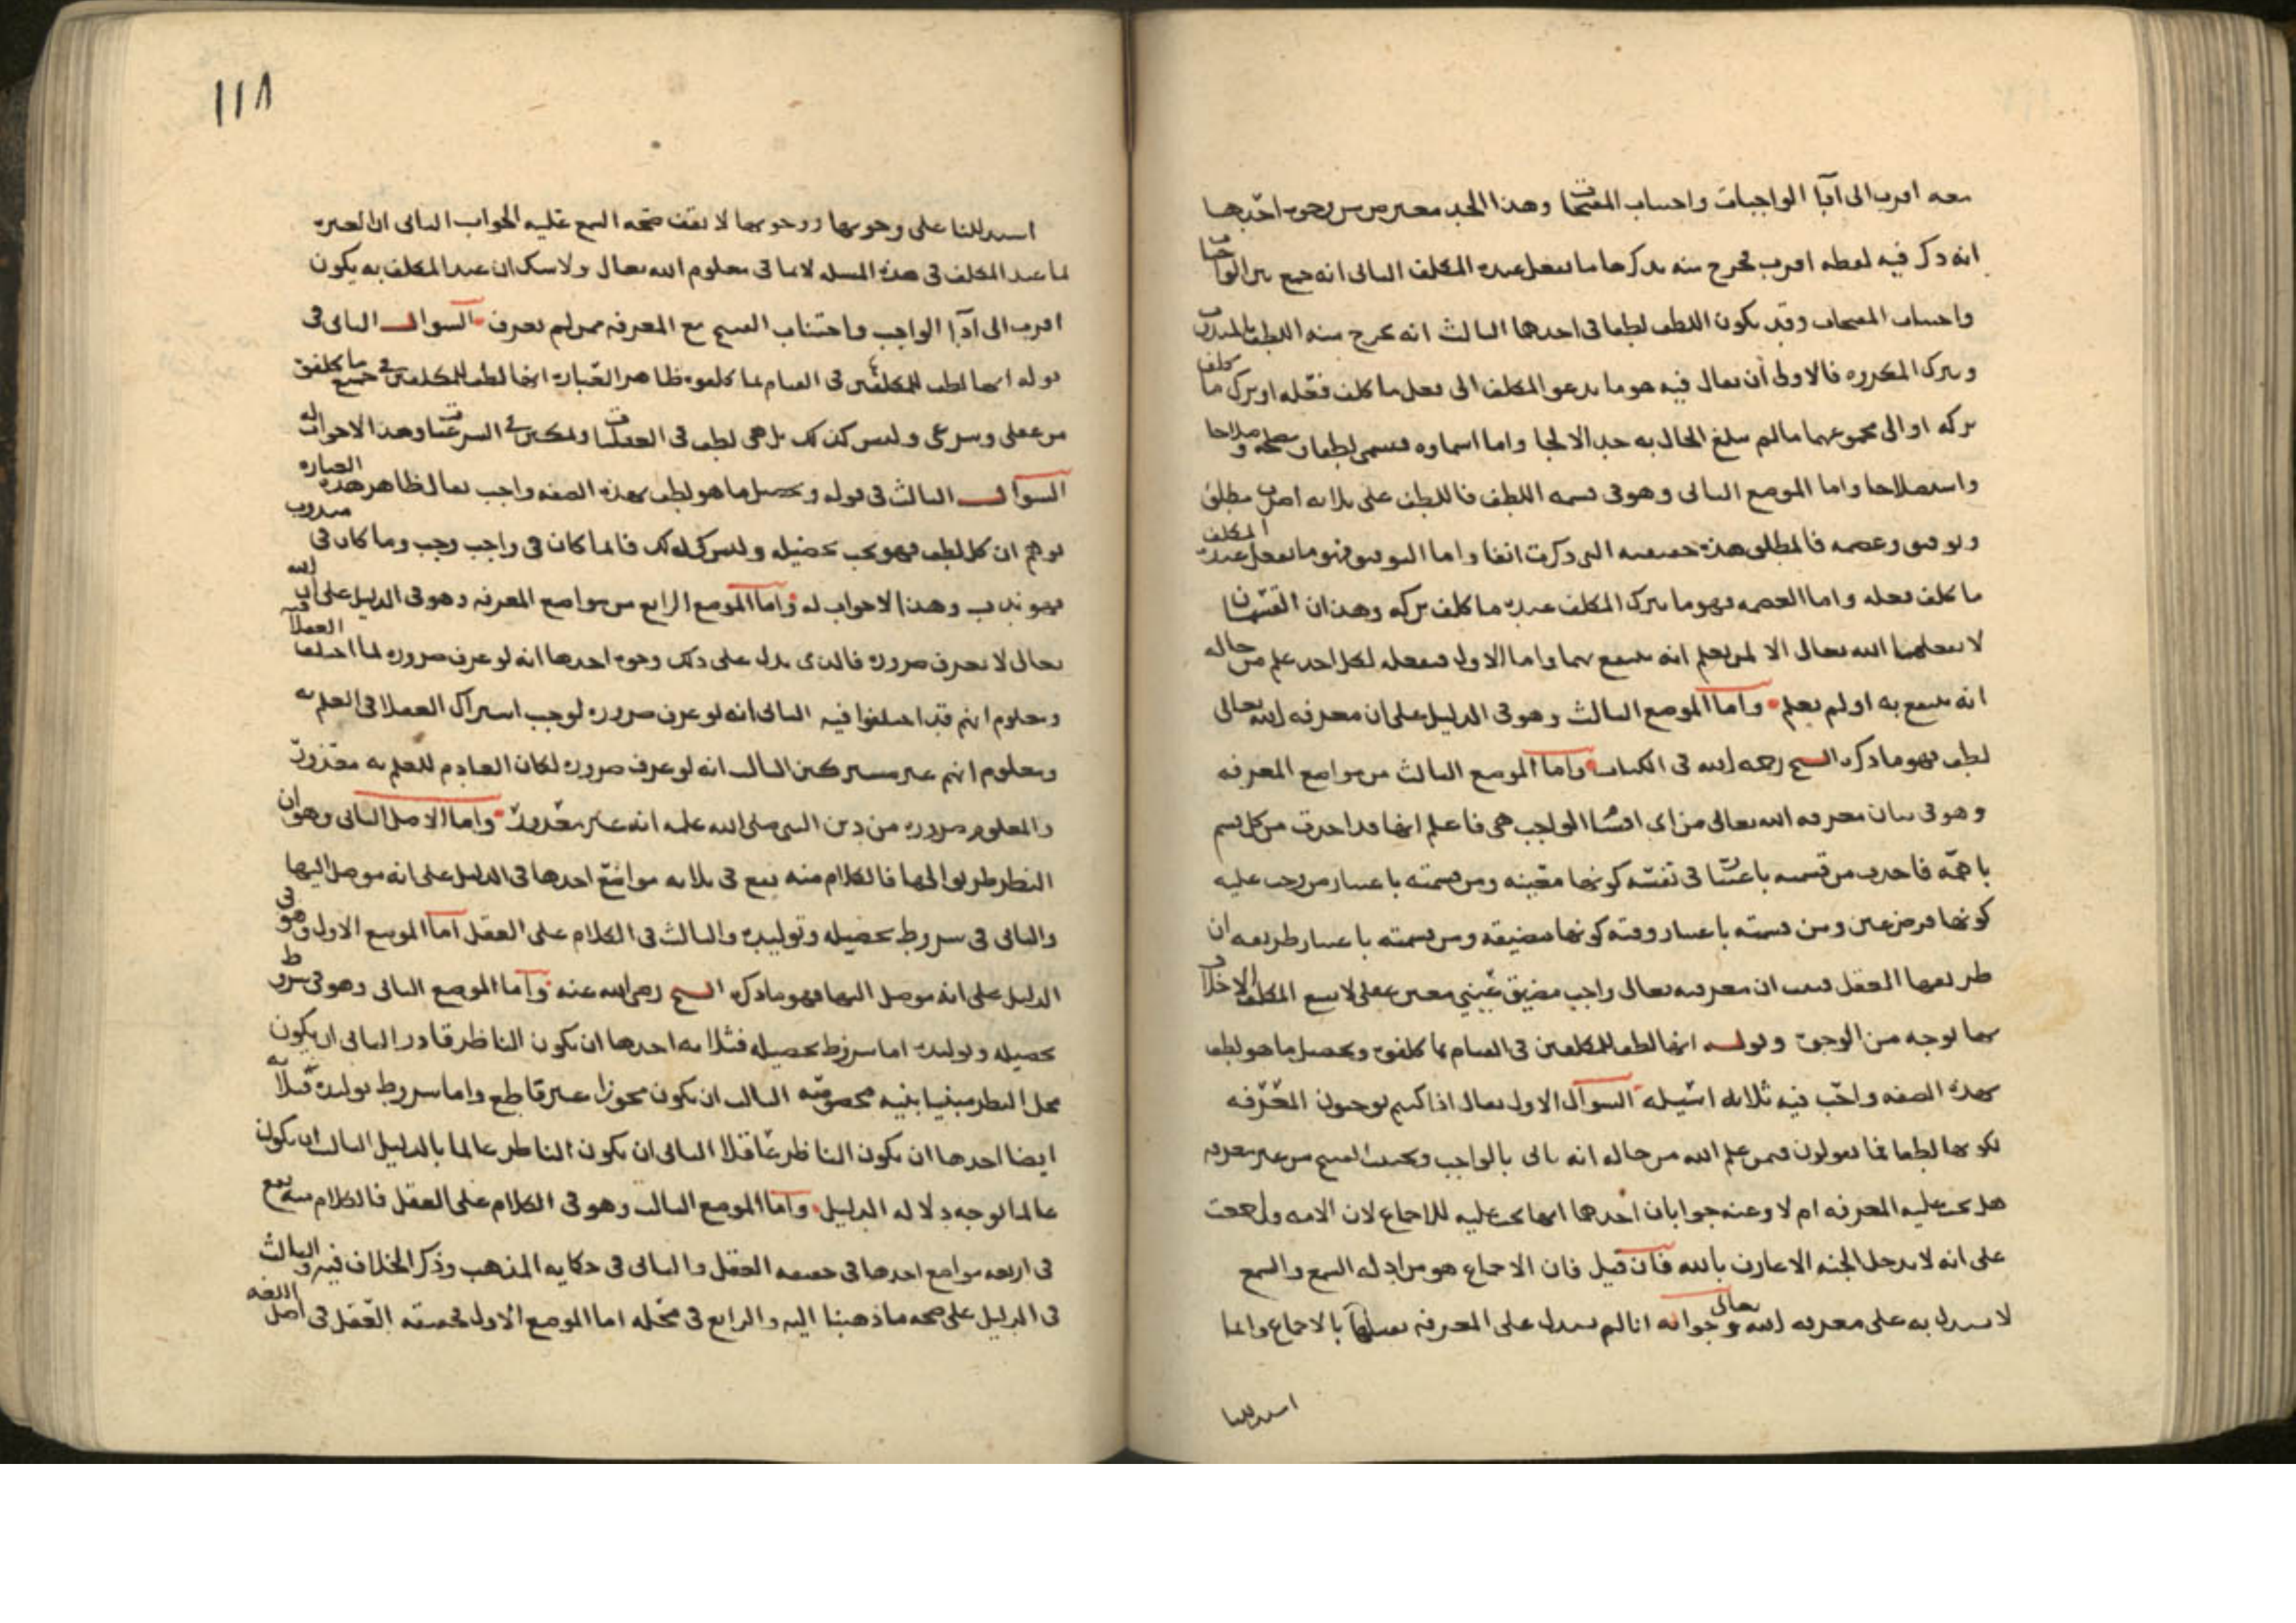 معه اقرب الى اداء الواجبات واجتناب المقبحات وهذا الحد معترض من وجوه احدها
انه ذكر فيه لفظه اقرب فخرج منه بذكرها ما يفعل عنده المكلف الثاني انه جمع بين الواجبات
واجتناب المقبحات وقد يكون اللطف لطفا في احدهما الثالث انه يخرج منه اللطف بالمندوب
وبترك المكروه فالاولى ان يقال فيه هو ما يدعو المكلف الى فعل ما كلف فعله او ترك ما كلف
تركه او الى مجموعهما ما لم يبلغ الحال به حد الالجا واما اسماوه فيسمى لطفا ومصلحه وصلاحا
واستصلاحا واما الموضع الثاني وهو في قسمه اللطف فاللطف على ثلاثه اضرب مطلق
وتوفيق وعصمه فالمطلق هذه حقيقته التي ذكرت انفا واما التوفيق فهو ما يفعل المكلف عنده
ما كلف فعله واما العصمه فهو ما يترك المكلف عنده ما كلف تركه وهذان القسمان
لا يفعلهما الله تعالى الا لمن يعلم انه ينتفع بهما واما الاول فيفعله لكل احد علم من حاله
انه ينتفع به او لم يعلم واما الموضع الثالث وهو في الدليل على ان معرفه الله تعالى
لطف فهو ما ذكره الشيخ رحمه الله في الكتاب واما الموضع الثالث من مواضع المعرفه
وهو في بيان معرفه الله تعالى من اي اقسام الواجب هي فاعلم انها قد اخذت من كل قسم
باهمه فاخذت من قسمته باعتبار في نفسه كونها معينه ومن قسمته باعتبار من وجب عليه
كونها فرض عين ومن قسمته باعتبار وقته كونها مضيقه ومن قسمته باعتبار طريقه ان
طريقها العقل فثبت ان معرفته تعالى واجب مضيق عيني معين عقلي لا يسع المكلف الاخلال
بها بوجه من الوجوه وقوله انها لطف للمكلفين في القيام بما كلفوه وتحصيل ما هو لطف
بهذه الصفه واجب فيه ثلاثه اسيله السوال الاول يقال اذا كنتم توجبون المعرفه
لكونها لطفا فما تقولون فيمن علم الله من حاله انه ياتي بالواجب ويجتنب القبيح من غير معرفه
هل تجب عليه المعرفه ام لا وعنه جوابان احدهما انها تجب عليه للاجماع لان الامه اجمعت
على انه لا يدخل الجنه الا عارف بالله فان قيل فان الاجماع هو من ادله السمع والسمع
لا يستدل به على معرفه الله تعالى وجوابه انا لم نستدل على المعرفه نفسها بالاجماع وانما
استدللنا
١١٨
استدللنا على وجوبها ووجوبها لا يقف صحه السمع عليه الجواب الثاني ان العبره
بما عند المكلف في هذه المسله لا بما في معلوم الله تعالى ولا شك ان عند المكلف به يكون
اقرب الى اداء الواجب واجتناب القبيح مع المعرفه ممن لم يعرف السوال الثاني في
قوله انها لطف للمكلفين في القيام بما كلفوه ظاهر العباره انها لطف للمكلفين في جميع ما كلفوه
من عقلي وشرعي وليس كذلك بل هي لطف في العقليات وتمكين في الشرعيات وهذا لا جواب له
السوال الثالث في قوله وتحصيل ما هو لطف بهذه الصفه واجب يقال ظاهر هذه العباره
توهم ان كل لطف فهو يجب تحصيله وليس كذلك فانما كان في واجب وجب وما كان في مندوب
فهو ندب وهذا لا جواب له واما الموضع الرابع من مواضع المعرفه وهو في الدليل على ان الله
تعالى لا يعرف ضروره فالذي يدل على ذلك وجوه احدها انه لو عرف ضروره لما اختلف فيه العقلا
ومعلوم انهم قد اختلفوا فيه الثاني انه لو عرف ضروره لوجب اشتراك العقلا في العلم به
ومعلوم انهم غير مشتركين الثالث انه لو عرف ضروره لكان العادم للعلم به معذورا
والمعلوم ضروره من دين النبي صلى الله عليه انه غير معذور واما الاصل الثاني وهو ان
النظر طريق اليها فالكلام منه يقع في ثلاثه مواضع احدها في الدليل على انه موصل اليها
والثاني في شروط تحصيله وتوليده والثالث في الكلام على العقل اما الموضع الاول وهو في
الدليل على انه موصل اليها فهو ما ذكره الشيخ رضي الله عنه واما الموضع الثاني وهو في شروط
تحصيله وتوليده اما شروط تحصيله فثلاثه احدها ان يكون الناظر قادرا الثاني ان يكون
محل النظر مبنيا بنيه مخصوصه الثالث ان يكون مجوزا غير قاطع واما شروط توليده فثلاثه
ايضا احدها ان يكون الناظر عاقلا الثاني ان يكون الناظر عالما بالدليل الثالث ان يكون
عالما بوجه دلاله الدليل واما الموضع الثالث وهو في الكلام على العقل فالكلام منه يقع
في اربعه مواضع احدها في حقيقه العقل والثاني في حكايه المذهب وذكر الخلاف فيه والثالث
في الدليل على صحه ما ذهبنا اليه والرابع في محله اما الموضع الاول فحقيقه العقل في اصل اللغه